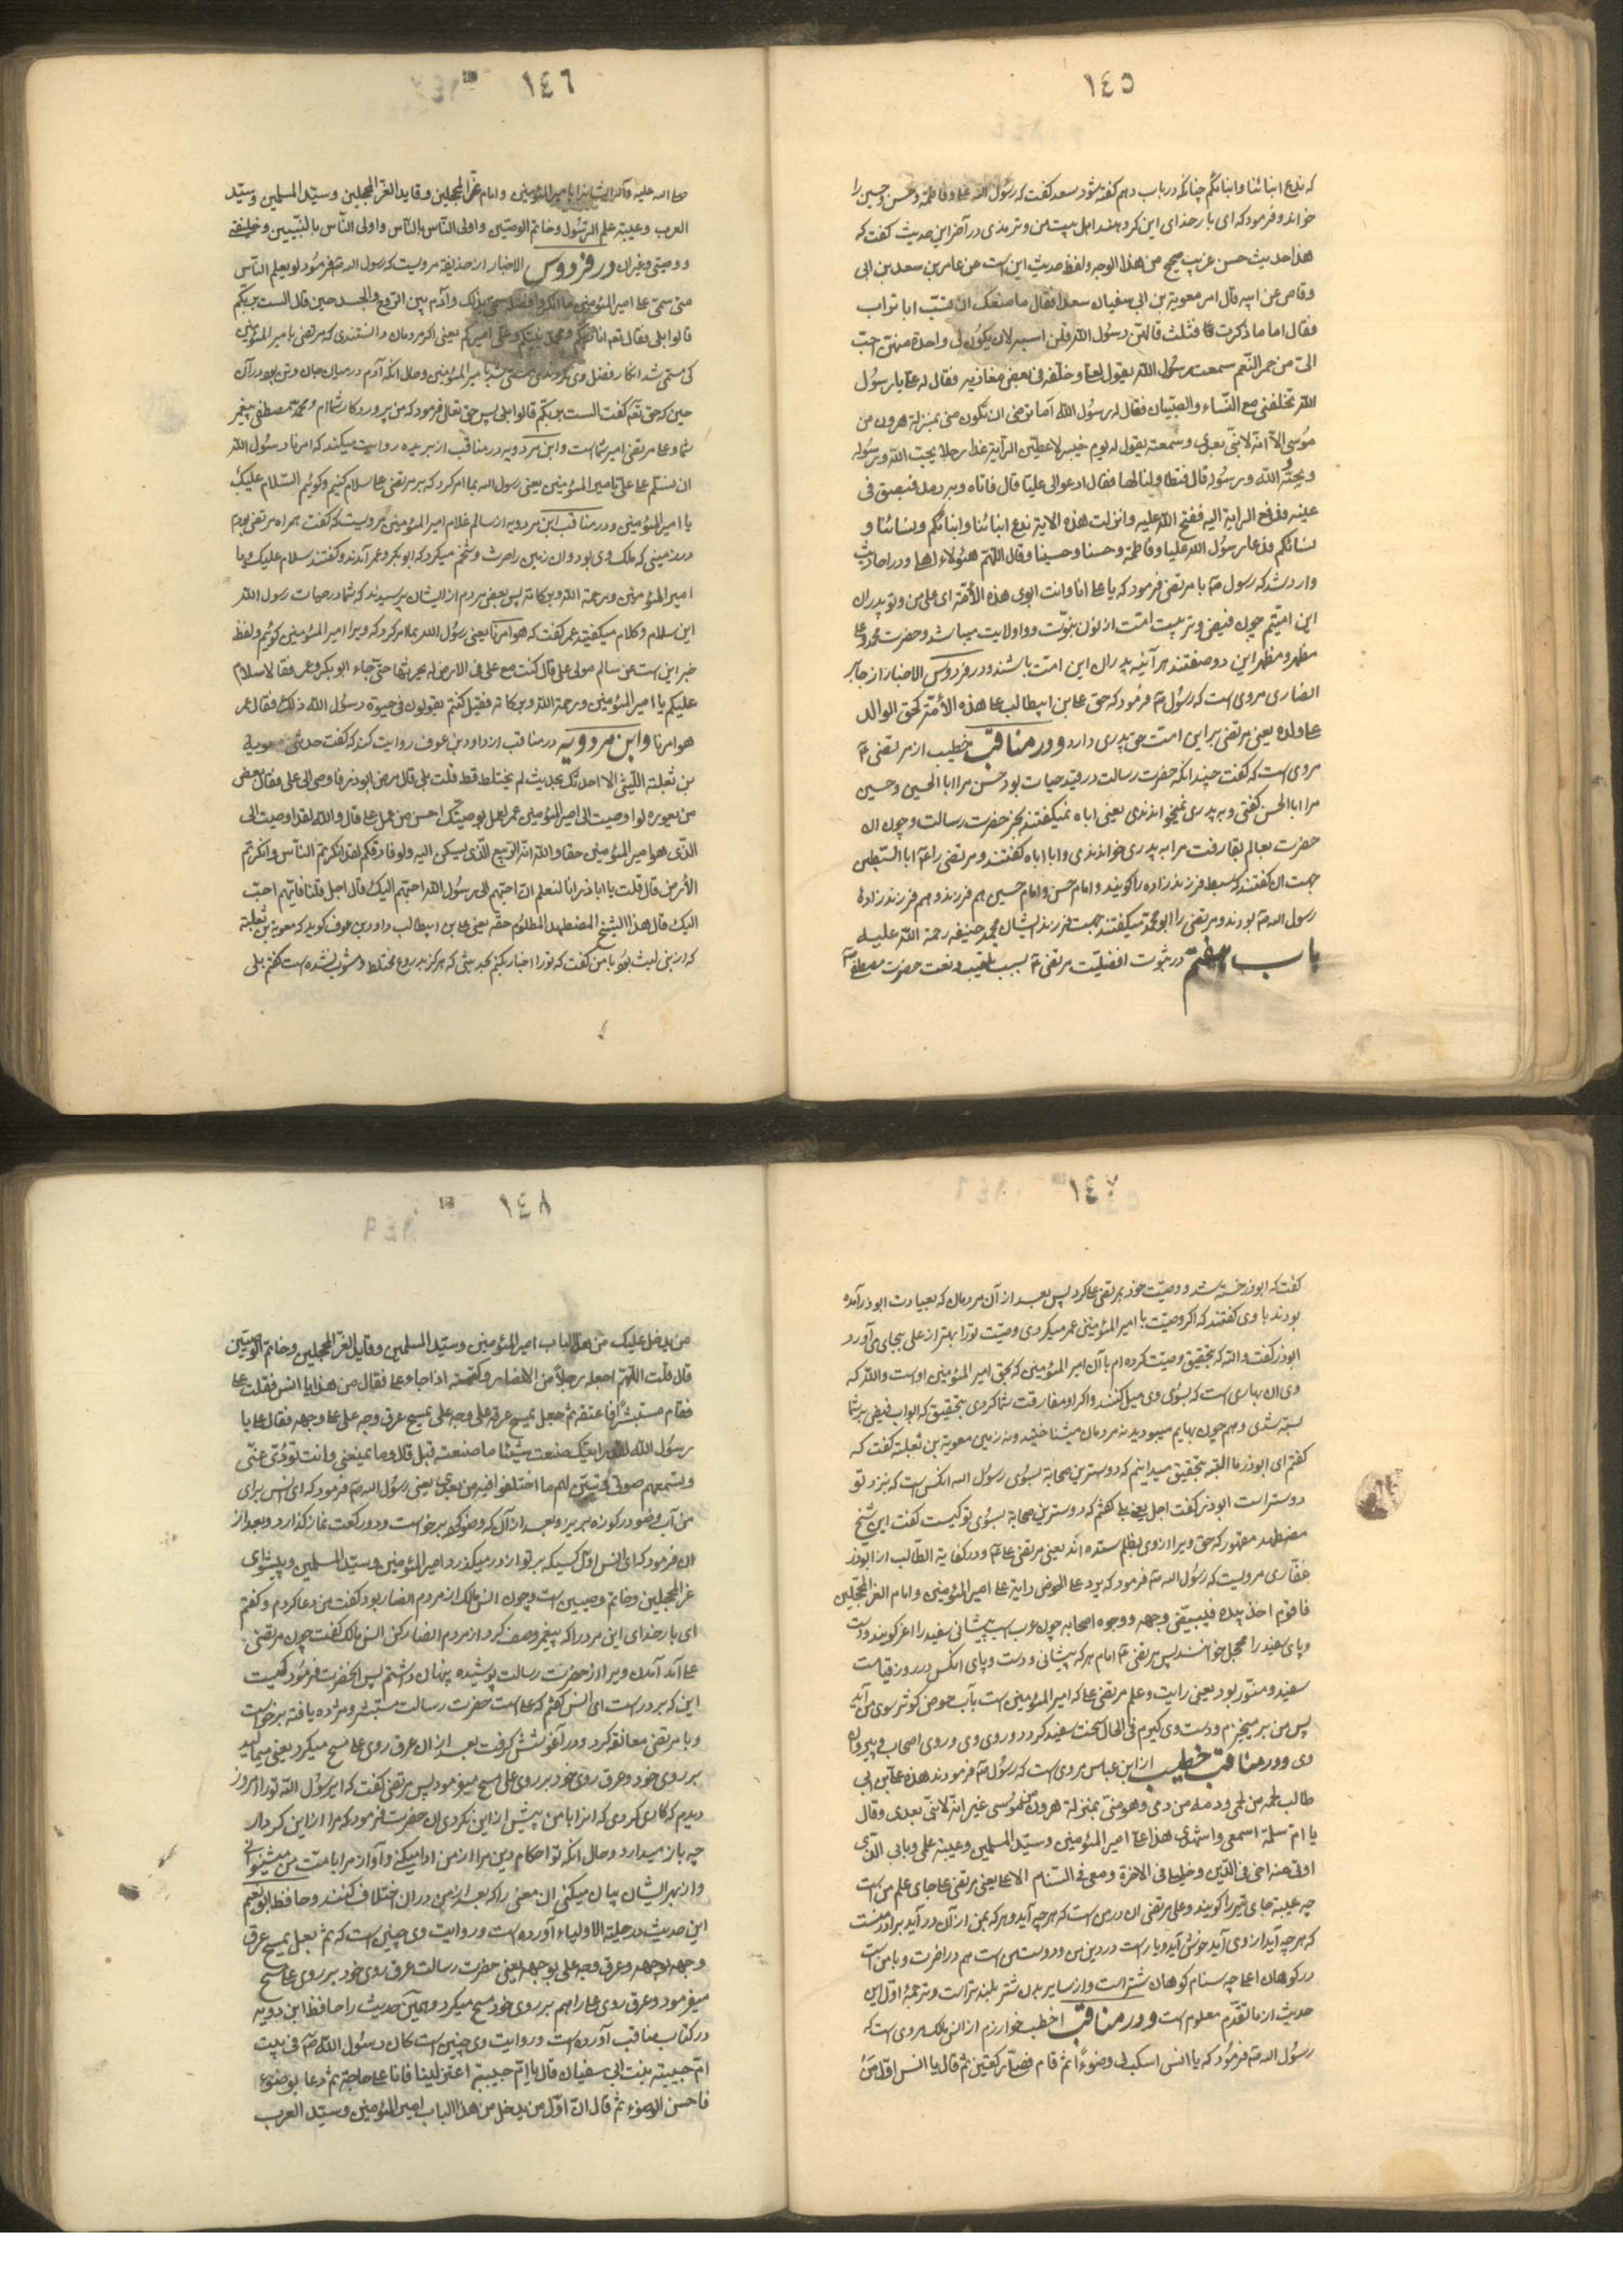 ١٤٥
که ندع ابنائنا وابنائکم چنانکه در باب دهم گفته شود سعد گفت که رسول الله علی و فاطمه و حسن و حسین را
خواند و فرمود که ای بار خدای این کرده اند اهل بیت من و ترمذی در آخر این حدیث گفت که
هذا حدیث حسن غریب صحیح من هذا الوجه و لفظ حدیث این است عن عامر بن سعد بن ابی
وقاص عن ابیه قال امر معویة بن ابی سفیان سعدا فقال ما منعک ان تسب ابا تراب
فقال اما ما ذکرت ثلث قالهن رسول الله فلن اسبه لان یکون لی واحدة منهن احب
الی من حمر النعم سمعت رسول الله یقول لعلی و خلفه فی بعض مغازیه فقال له علی یا رسول
الله تخلفنی مع النساء والصبیان فقال له رسول الله اما ترضی ان تکون منی بمنزلة هرون من
موسی الا انه لا نبی بعدی و سمعته یقول له یوم خیبر لاعطین الرایة غدا رجلا یحب الله ورسوله
و یحبه الله و رسوله قال فتطاولنا لها فقال ادعوا لی علیا قال فاتاه و به رمد فبصق فی
عینه فدفع الرایة الیه ففتح الله علیه و انزلت هذه الایة ندع ابنائنا وابنائکم و نسائنا و
نسائکم فدعا رسول الله علیا و فاطمة و حسنا و حسینا و قال اللهم هؤلاء اهلی و در احادیث
وارد شد که رسول با مرتضی فرمود که یا علی انا وانت ابوی هذه الامة ای علی من و تو پدران
این امتیم چون فیض و تربیت امت از نون نبوت و واو ولایت میباشد و حضرت محمد و علی
مظهر و مظهر این دو صفتند هر آینه پدران این امت باشند و در فردوس الاخبار از جابر
انصاری مروی است که رسول فرمود که حق علی بن ابیطالب علی هذه الامة کحق الوالد
علی ولده یعنی مرتضی بر این امت حق پدری دارد و در مناقب خطیب از مرتضی
مروی است که گفت چندانکه حضرت رسالت در قید حیات بود حسن مرا ابا الحسین و حسین
مرا ابا الحسن گفتی و به پدری نمیخواندندی یعنی اباه نمیگفتند بجز حضرت رسالت و چون ان
حضرت بعالم بقا رفت مرا به پدری خواندندی و ابا اباه گفتند و مرتضی را ابا السبطین
جهت ان گفتند که سبط فرزند زاده را گویند و امام حسن و امام حسین هم فرزند و هم فرزند زادهٔ
رسول الله بودند و مرتضی را ابو محمد میگفتند جهت فرزند ایشان محمد حنیفه رحمة الله علیه
باب هفتم در ثبوت افضلیت مرتضی بسبب تلقیب و نعت حضرت مصطفی
١٤٦
صلی الله علیه وآله ایشانرا بامیر المؤمنین و امام غر المحجلین و قاید الغر المحجلین و سید المسلمین و سید
العرب و عیبة علم الرسول و خاتم الوصیین و اولی الناس بالناس و اولی الناس بالنبیین و خلیفتی
و وصیی و غیران در فردوس الاخبار از حذیفه مرویست که رسول الله فرمود لو یعلم الناس
متی سمی علی امیر المؤمنین ما انکروا فضله سمی بذلک و آدم بین الروح و الجسد حین قال الست بربکم
قالوا بلی فقال تعم انا ربکم و محمد نبیکم و علی امیرکم یعنی اکر مردمان دانستندی که مرتضی بامیر المؤمنین
کی مسمی شد انکار فضل وی نکردندی مسمی شد بامیر المؤمنین و حال انکه آدم در میان جان و تن بود در آن
حین که حق تعم گفت الست بربکم قالوا بلی پس حق تعالی فرمود که من پروردکار شماام و محمد مصطفی پیغمبر
شما و علی مرتضی امیر شماست و ابن مردویه در مناقب از بریده روایت میکند که امرنا رسول الله
ان نسلم علی علی بامیر المؤمنین یعنی رسول الله بما امر کرد که بر مرتضی علی سلام کنیم و کوئیم السلام علیک
یا امیر المؤمنین و در مناقب ابن مردویه از سالم غلام امیر المؤمنین مرویست که گفت همراه مرتضی بودم
در زمینی که ملک وی بود و ان زمین را حرث و شخم میکرد که ابوبکر و عمر آمدند و گفتند سلام علیک یا
امیر المؤمنین و رحمة الله و برکاته پس بعضی مردم از ایشان پرسیدند که شما در حیات رسول الله
این سلام و کلام میگفتید عمر گفت که هو امرنا یعنی رسول الله بما امر کرد که ویرا امیر المؤمنین کوئیم و لفظ
خبر این است عن سالم مولی علی قال کنت مع علی فی الارض له یحرثها حتی جاء ابو بکر و عمر فقالا سلام
علیکم یا امیر المؤمنین و رحمة الله و برکاته فقیل کنتم تقولون فی حیوة رسول الله ذلک فقال عمر
هو امرنا و ابن مردویه در مناقب از داود بن عوف روایت کند که گفت حدثنی معویة
بن ثعلبة اللیثی الا احدثک بحدیث لم یختلط قط قلت بلی قال مرض ابوذر فاوصی الی علی فقال بعض
من یعوره لو اوصیت الی امیر المؤمنین عمر لعل بوصیتک احسن من عمل علی قال والله لقد اوصیت الی
الذی هو امیر المؤمنین حقا والله انه الربیع الذی یسکن الیه و لو فارقکم لقد انکرتم الناس وانکرتم
الارض قال قلت یا اباذر انا لنعلم ان احبهم الی رسول الله احبهم الیک قال اجل قلنا فایهم احب
الیک قال هذا الشیخ المضطهد المظلوم حقه یعنی علی بن ابیطالب داود بن عوف کوید که معویة بن ثعلبة
که از بنی لیث بود با من گفت که تو را اخبار بکنم بخبریئی که هرکز بدروغ مختلط و مشوب نشده است گفتم بلی
١٤٧
گفت که ابوذر خسته شد و وصیت خود بمرتضی علی کرد پس بعد از آن مردمان که بعیادت ابوذر آمده
بودند با وی گفتند که اکر وصیت با امیر المؤمنین عمر میکردی وصیت تو را بهتر از علی بجای می آورد
ابوذر گفت والله که بتحقیق وصیت کرده ام با آن امیر المؤمنین که بحق امیر المؤمنین اوست والله که
وی ان بهاری است که بسوی وی میل کنند و اکر او مفارقت شما کردی بتحقیق که ابواب فیض بر شما
بسته شدی و هم چون بهایم میبودید نه مردمان میشناختید و نه زمین معویة بن ثعلبة گفت که
گفتم ای ابوذر ما البته بتحقیق میدانیم که دوستترین صحابة بسوی رسول الله انکس است که نزد تو
دوستر است ابوذر گفت اجل یعنی بلی گفتم که دوسترین صحابة بسوی تو کیست گفت این شیخ
مضطهد مقهور که حق ویرا از وی بظلم ستده اند یعنی مرتضی علی و در کفایة الطالب از ابوذر
غفاری مرویست که رسول الله فرمود که یرد علی الحوض رایة علی امیر المؤمنین و امام الغر المحجلین
فاقوم اخذ بیده فیبیض وجهه و وجوه اصحابه چون عرب اسب پیشانی سفید را اغر کویند و دست
و پای سفید را محجل خوانند پس مرتضی امام هر که پیشانی و دست و پای انکس در روز قیامت
سفید و منور بود یعنی رایت و علم مرتضی علی که امیر المؤمنین است بآب حوض کوثر سوی من آید
پس من بر میخیزم و دست وی کیرم فی الحال سخت سفید کردد و روی وی و روی اصحاب و پیروان
وی و در مناقب خطیب از ابن عباس مروی است که رسول فرمودند هذا علی بن ابی
طالب لحمه من لحمی و دمه من دمی و هو منی بمنزلة هرون من موسی غیر انه لا نبی بعدی و قال
یا ام سلمة اسمعی واشهدی هذا علی امیر المؤمنین و سید المسلمین و عیبة علمی و بابی الذی
اوتی منه اخی فی الدین و خلیلی فی الاخرة و معی فی السنام الاعلی یعنی مرتضی علی جای علم من است
چه عیبة جای قیر را کویند و علی مرتضی ان در من است که هر چه آید و هر که بمن از آن در آید برادر منست
که هر چه آید از وی آید خوش آید و یار است در دین من و دوست من است هم در اخرت و با من است
در کوهان اعلی چه سنام کوهان شتر است و از سایر بدن شتر بلندتر است و ترجمهٔ اول این
حدیث از ما تقدم معلوم است و در مناقب اخطب خوارزم از انس مالک مروی است که
رسول الله فرمود که یا انس اسکب لی وضوءا ثم قام فصلی رکعتین ثم قال یا انس اول من
١٤٨
من یدخل علیک من هذا الباب امیر المؤمنین و سید المسلمین و قاید الغر المحجلین و خاتم الوصیین
قال قلت اللهم اجعله رجلا من الانصار و کتمته اذا جاء علی فقال من هذا یا انس فقلت علی
فقام مستبشرا فاعتنقه ثم جعل یمسح عرقه علی وجه علی یمسح عرق وجه علی علی وجهه فقال علی یا
رسول الله لقد رایتک صنعت شیئا ما صنعته قبل قال و ما یمنعنی و انت تؤدی عنی
و تسمعهم صوتی و تبین لهم ما اختلفوا فیه من بعدی یعنی رسول الله فرمود که ای انس برای
من آب وضو در کوزه بریز و بعد از آن که وضو کرد برخواست و دو رکعت نماز کذارد و بعد از
ان فرمود که ای انس اول کسیکه بر تو از در میکذرد امیر المؤمنین و سید المسلمین و پیشوای
غر المحجلین و خاتم وصیین است و چون انس مالک از مردم انصار بود گفت من دعا کردم و گفتم
ای بار خدای این مرد را که پیغمبر وصف کرد از مردم انصار کن انس مالک گفت چون مرتضی
علی آمد آمدن ویرا از حضرت رسالت پوشیده پنهان داشتم پس انحضرت فرمود کیست
این که بر در است ای انس گفتم که علی است حضرت رسالت مستبشر و مژده یافته برخواست
و با مرتضی معانقه کرد و در آغوشش کرفت بعد از ان عرق روی علی مسح میکرد یعنی میمالید
بر روی خود و عرق روی خود بر روی علی مسح میفرمود پس مرتضی گفت که ای رسول الله تو را امروز
دیدم که کاری کردی که انرا با من پیش از این نکردی ان حضرت فرمود که مرا از این کردار
چه باز میدارد و حال انکه تو احکام دین مرا از من ادا میکنی و آواز مرا بامت من میشنوانی
و از بهر ایشان بیان میکنی ان معنی را که بعد از من در ان اختلاف کنند و حافظ ابو نعیم
این حدیث در حلیة الاولیاء آورده است و روایت وی چنین است که ثم جعل یمسح عرق
وجهه بوجهه و عرق وجه علی بوجهه یعنی حضرت رسالت عرق روی خود بر روی علی مسح
میفرمود و عرق روی علی را هم بر روی خود مسح میکرد و همین حدیث را حافظ ابن مردویه
در کتاب مناقب آورده است و روایت وی چنین است کان رسول الله فی بیت
ام حبیبة بنت ابی سفیان قال یا ام حبیبة اعتزلینا فانا علی حاجة ثم دعا بوضوء
فاحسن الوضوء ثم قال ان اول من یدخل من هذا الباب امیر المؤمنین و سید العرب